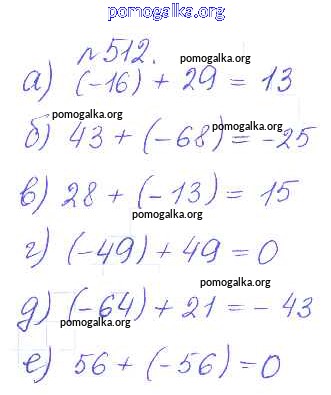 pomogalka.org
№512.
pomogalka.org
а) (-16) + 29 = 13
pomogalka.org
pomogalka.org
б) 43 + (-68) = -25
в) 28 + (-13) = 15
pomogalka.org
г) (-49) + 49 = 0
pomogalka.org
д) (-64) + 21 = - 43
pomogalka.org
е) 56 + (-56) = 0